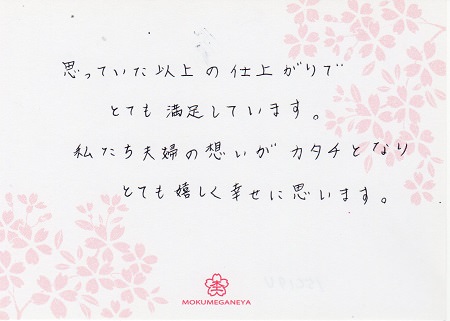 思っていた以上の仕上がりで
とても満足しています。
私たち夫婦の想いがカタチとなり
とても嬉しく幸せに思います。
MOKUMEGANEYA